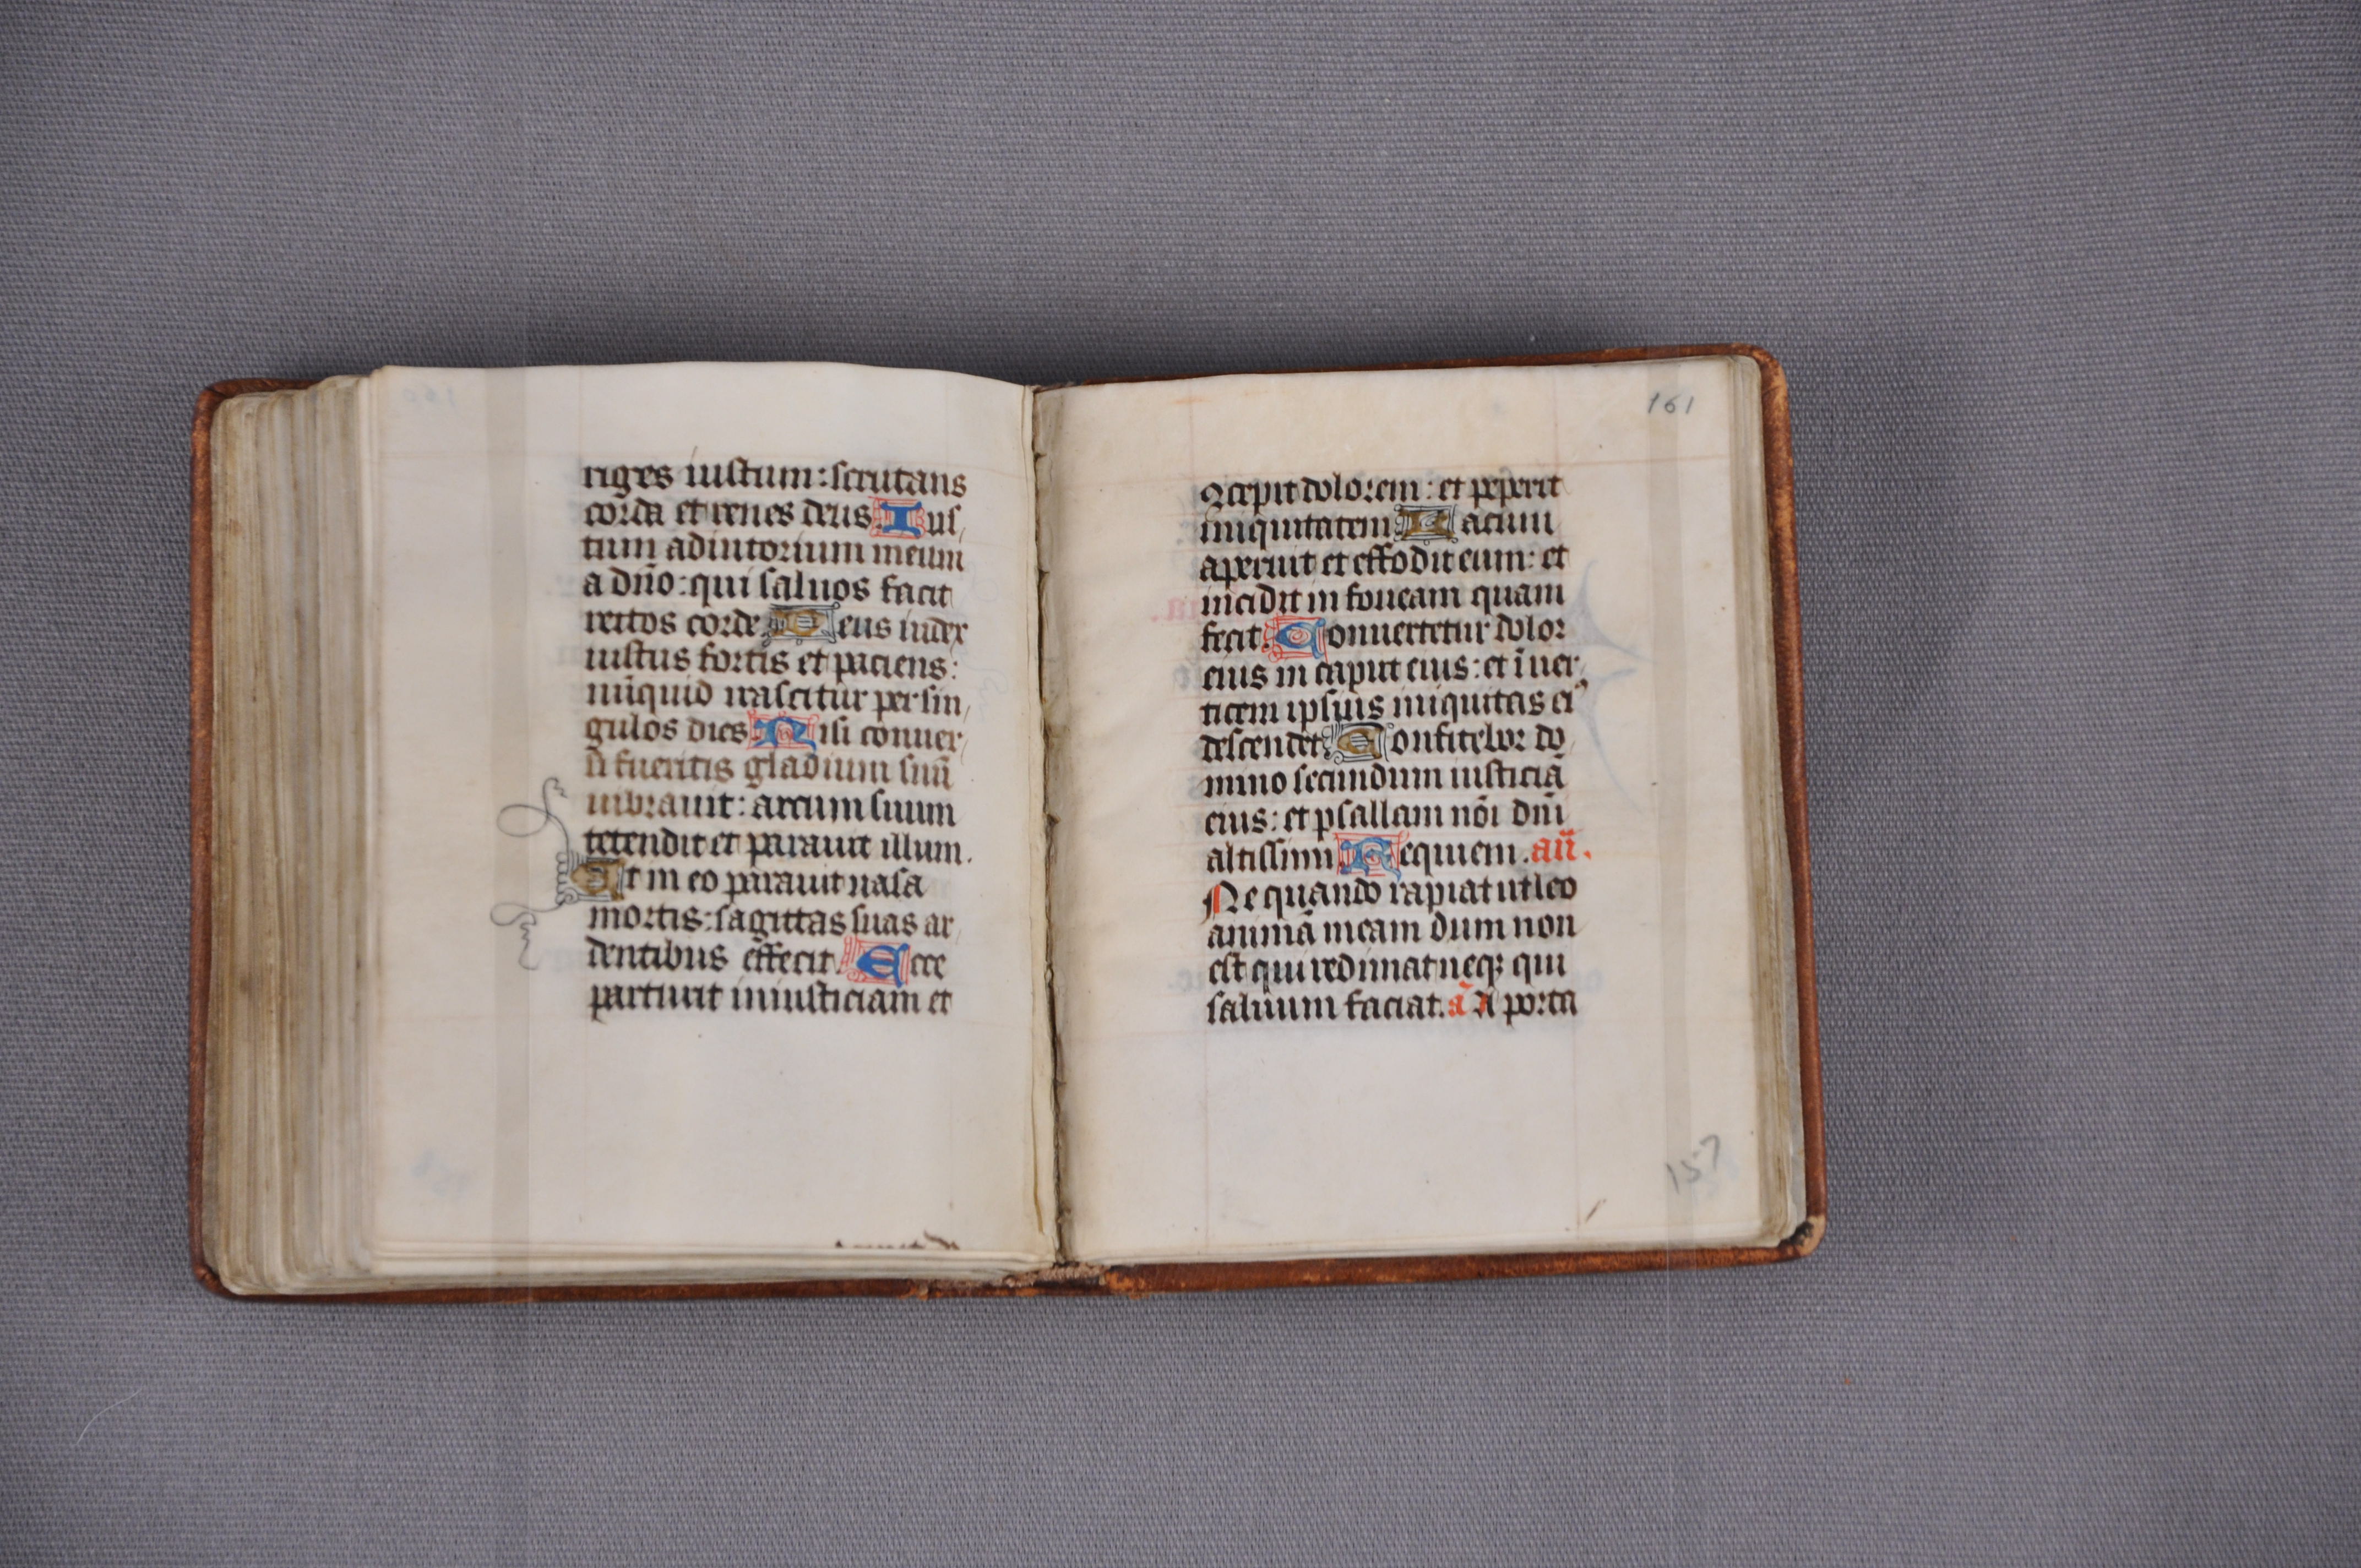 riges iustum: scrutans
corda et renes deus Ius,
tum adiutorium meum
a dño: qui saluos facit
rectos corde Deus iudex
iustus fortis et paciens:
nũquid irascitur per sin,
gulos dies Nisi conuer,
si fueritis gladium suũ
uibrauit: arcum suum
tetendit et parauit illum.
Et in eo parauit uasa
mortis: sagittas suas ar,
dentibus effecit. Ecce
parturit iniusticiam et
161
ꝯcepit dolorem: et peperit
iniquitatem Lacum
aperuit et effodit eum: et
incidit in foueam quam
fecit. Conuertetur dolor
eius in caput eius: et ĩ uer,
ticem ipsius iniquitas eiꝰ
descendet. Confitebor do,
mino secundum iusticiã
eius: et psallam nõi dñi
altissimi Requiem. añ.
Ne quando rapiat ut leo
animã meam dum non
est qui redimat neqꝫ qui
saluum faciat. ã A porta
157